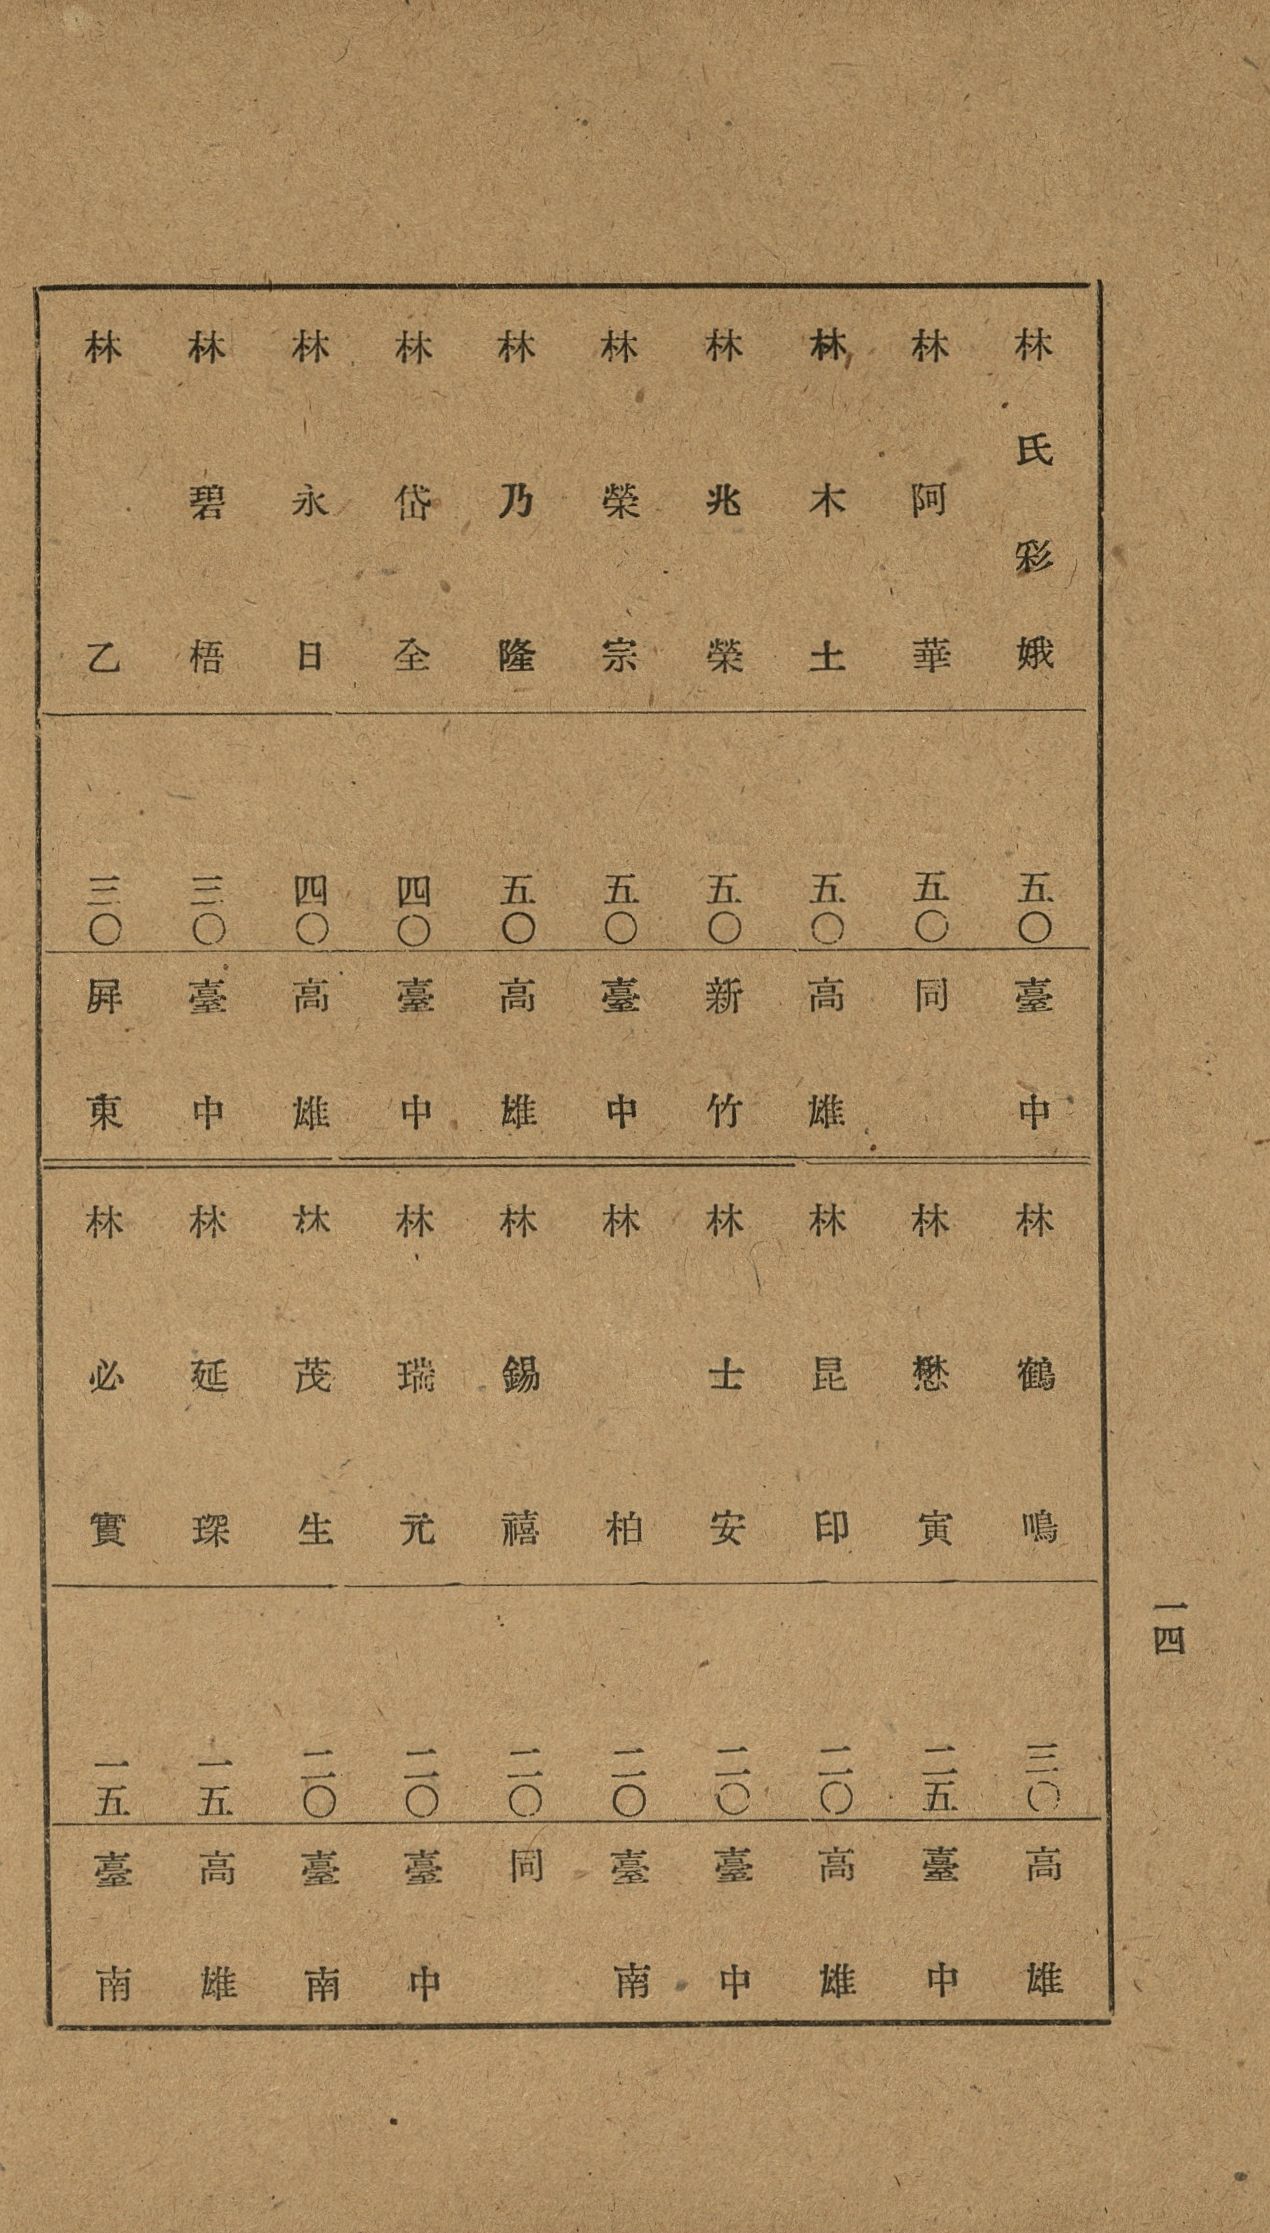 林氏彩娥 五〇 臺中
林阿華 五〇 同
林木土 五〇 高雄
林兆榮 五〇 新竹
林榮宗 五〇 臺中
林乃隆 五〇 高雄
林岱全 四〇 臺中
林永日 四〇 高雄
林碧梧 三〇 臺中
林乙 三〇 屏東
林鶴鳴 三〇 高雄
林懋寅 二五 臺中
林昆印 二〇 高雄
林士安 二〇 臺中
林柏 二〇 臺南
林錫禧 二〇 同
林瑞元 二〇 臺中
林茂生 二〇 臺南
林延琛 一五 高雄
林必實 一五 臺南
一四